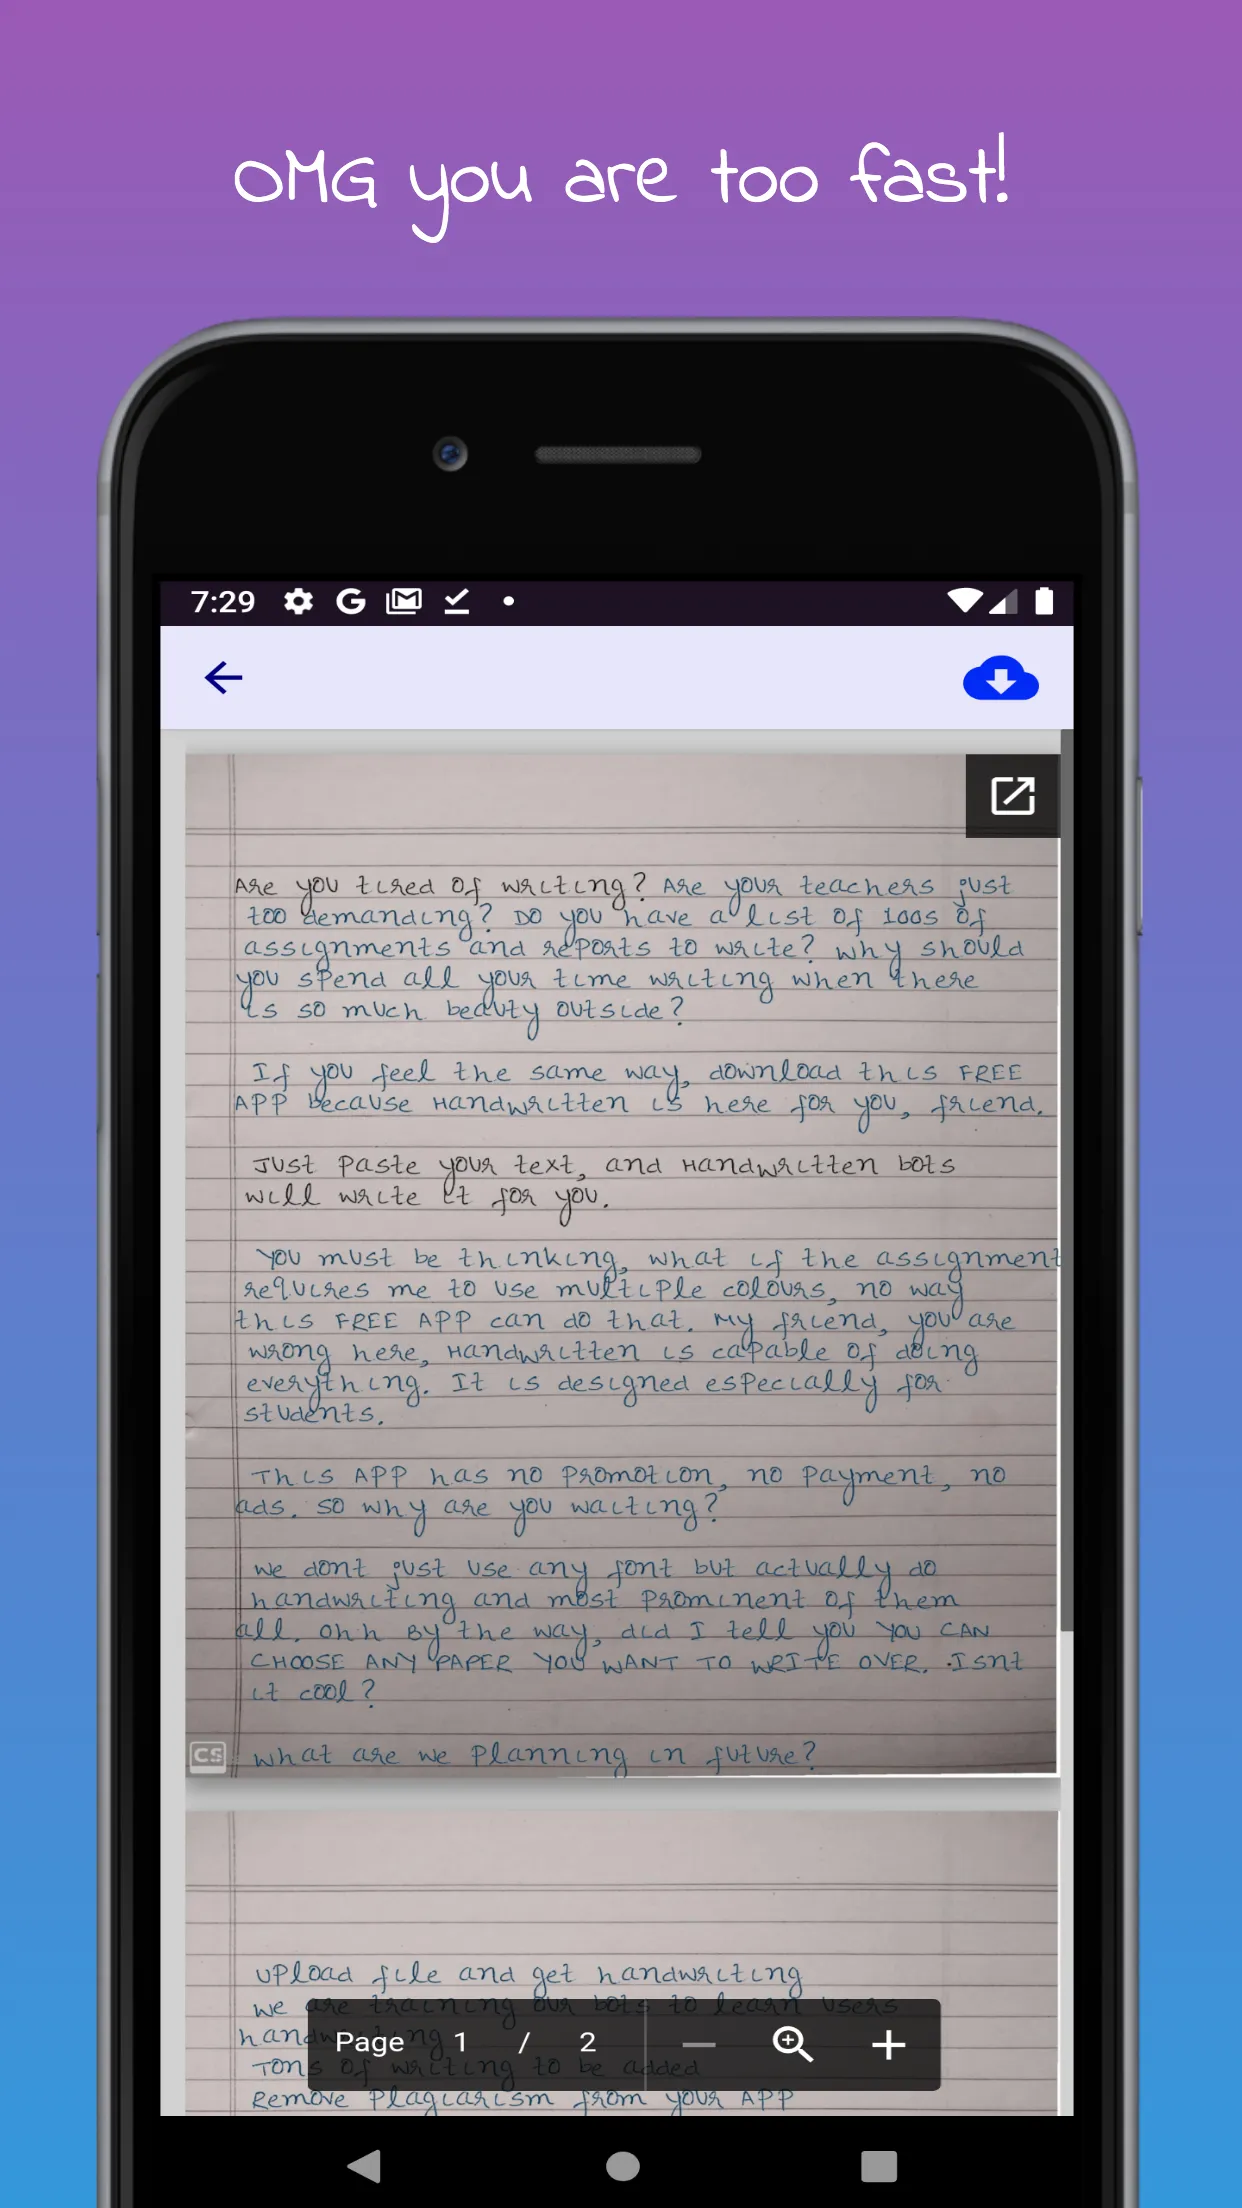 OMG you are too fast!
7:29
Are you tired of writing? Are your teachers just
too demanding? Do you have a list of 100s of
assignments and reports to write? Why should
you spend all your time writing when there
is so much beauty outside?
If you feel the same way, download this FREE
APP because Handwritten is here for you, friend.
Just paste your text, and Handwritten bots
will write it for you.
You must be thinking, what if the assignment
requires me to use multiple colours, no way
this FREE APP can do that. My friend, you are
wrong here, Handwritten is capable of doing
everything. It is designed especially for
students.
This APP has no promotion, no payment, no
ads. So why are you waiting?
We dont just use any font but actually do
handwriting and most prominent of them
all. Ohh By the way, did I tell you YOU CAN
CHOOSE ANY PAPER YOU WANT TO WRITE OVER. Isnt
it cool?
CS
What are we planning in future?
Upload file and get handwriting
We are training our bots to learn users
handwriting
Page 1 / 2
Tons of writing to be added
Remove Plagiarism from your APP